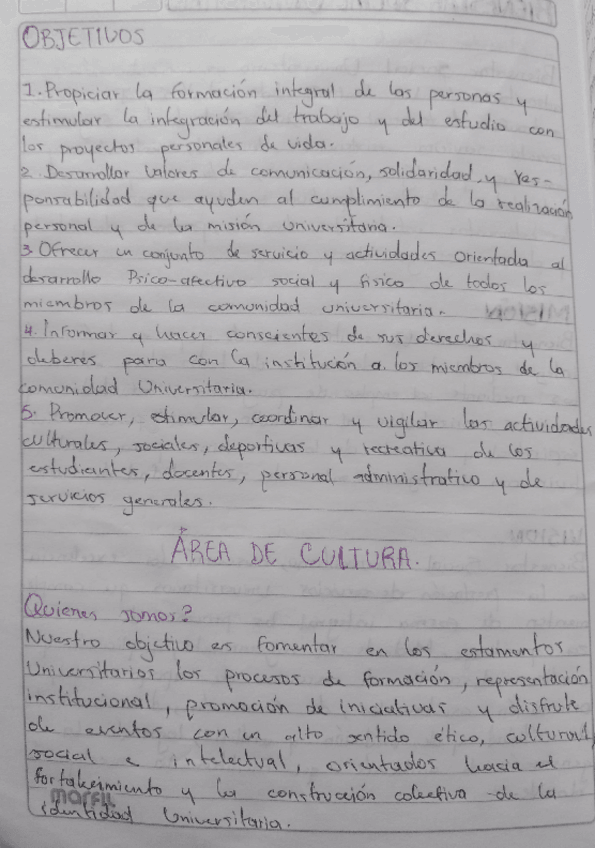 OBJETIVOS
1. Propiciar la formación integral de las personas y
estimular la integración del trabajo y del estudio con
los proyectos personales de vida.
2. Desarrollar valores de comunicación, solidaridad, y res-
ponsabilidad que ayuden al cumplimiento de la realización
personal y de la misión universitaria.
3 Ofrecer un conjunto de servicio y actividades orientada al
desarrollo Psico-afectivo social y fisico de todos los
miembros de la comunidad universitaria.
4. Informar y hacer conscientes de sus derechos y
deberes para con la institución a los miembros de la
comunidad Universitaria.
5. Promover, estimular, coordinar y vigilar las actividades
culturales, sociales, deportivas y recreativa de los
estudiantes, docentes, personal administrativo y de
servicios generales.
ÁREA DE CULTURA.
Quienes somos?
Nuestro objetivo es fomentar en los estamentos
Universitarios los procesos de formación, representación
institucional, promoción de iniciativas y disfrute
de eventos con un alto sentido ético, cultural,
social e intelectual, orientados hacia el
fortalecimiento y la construcción colectiva de la
marfil
identidad Universitaria.